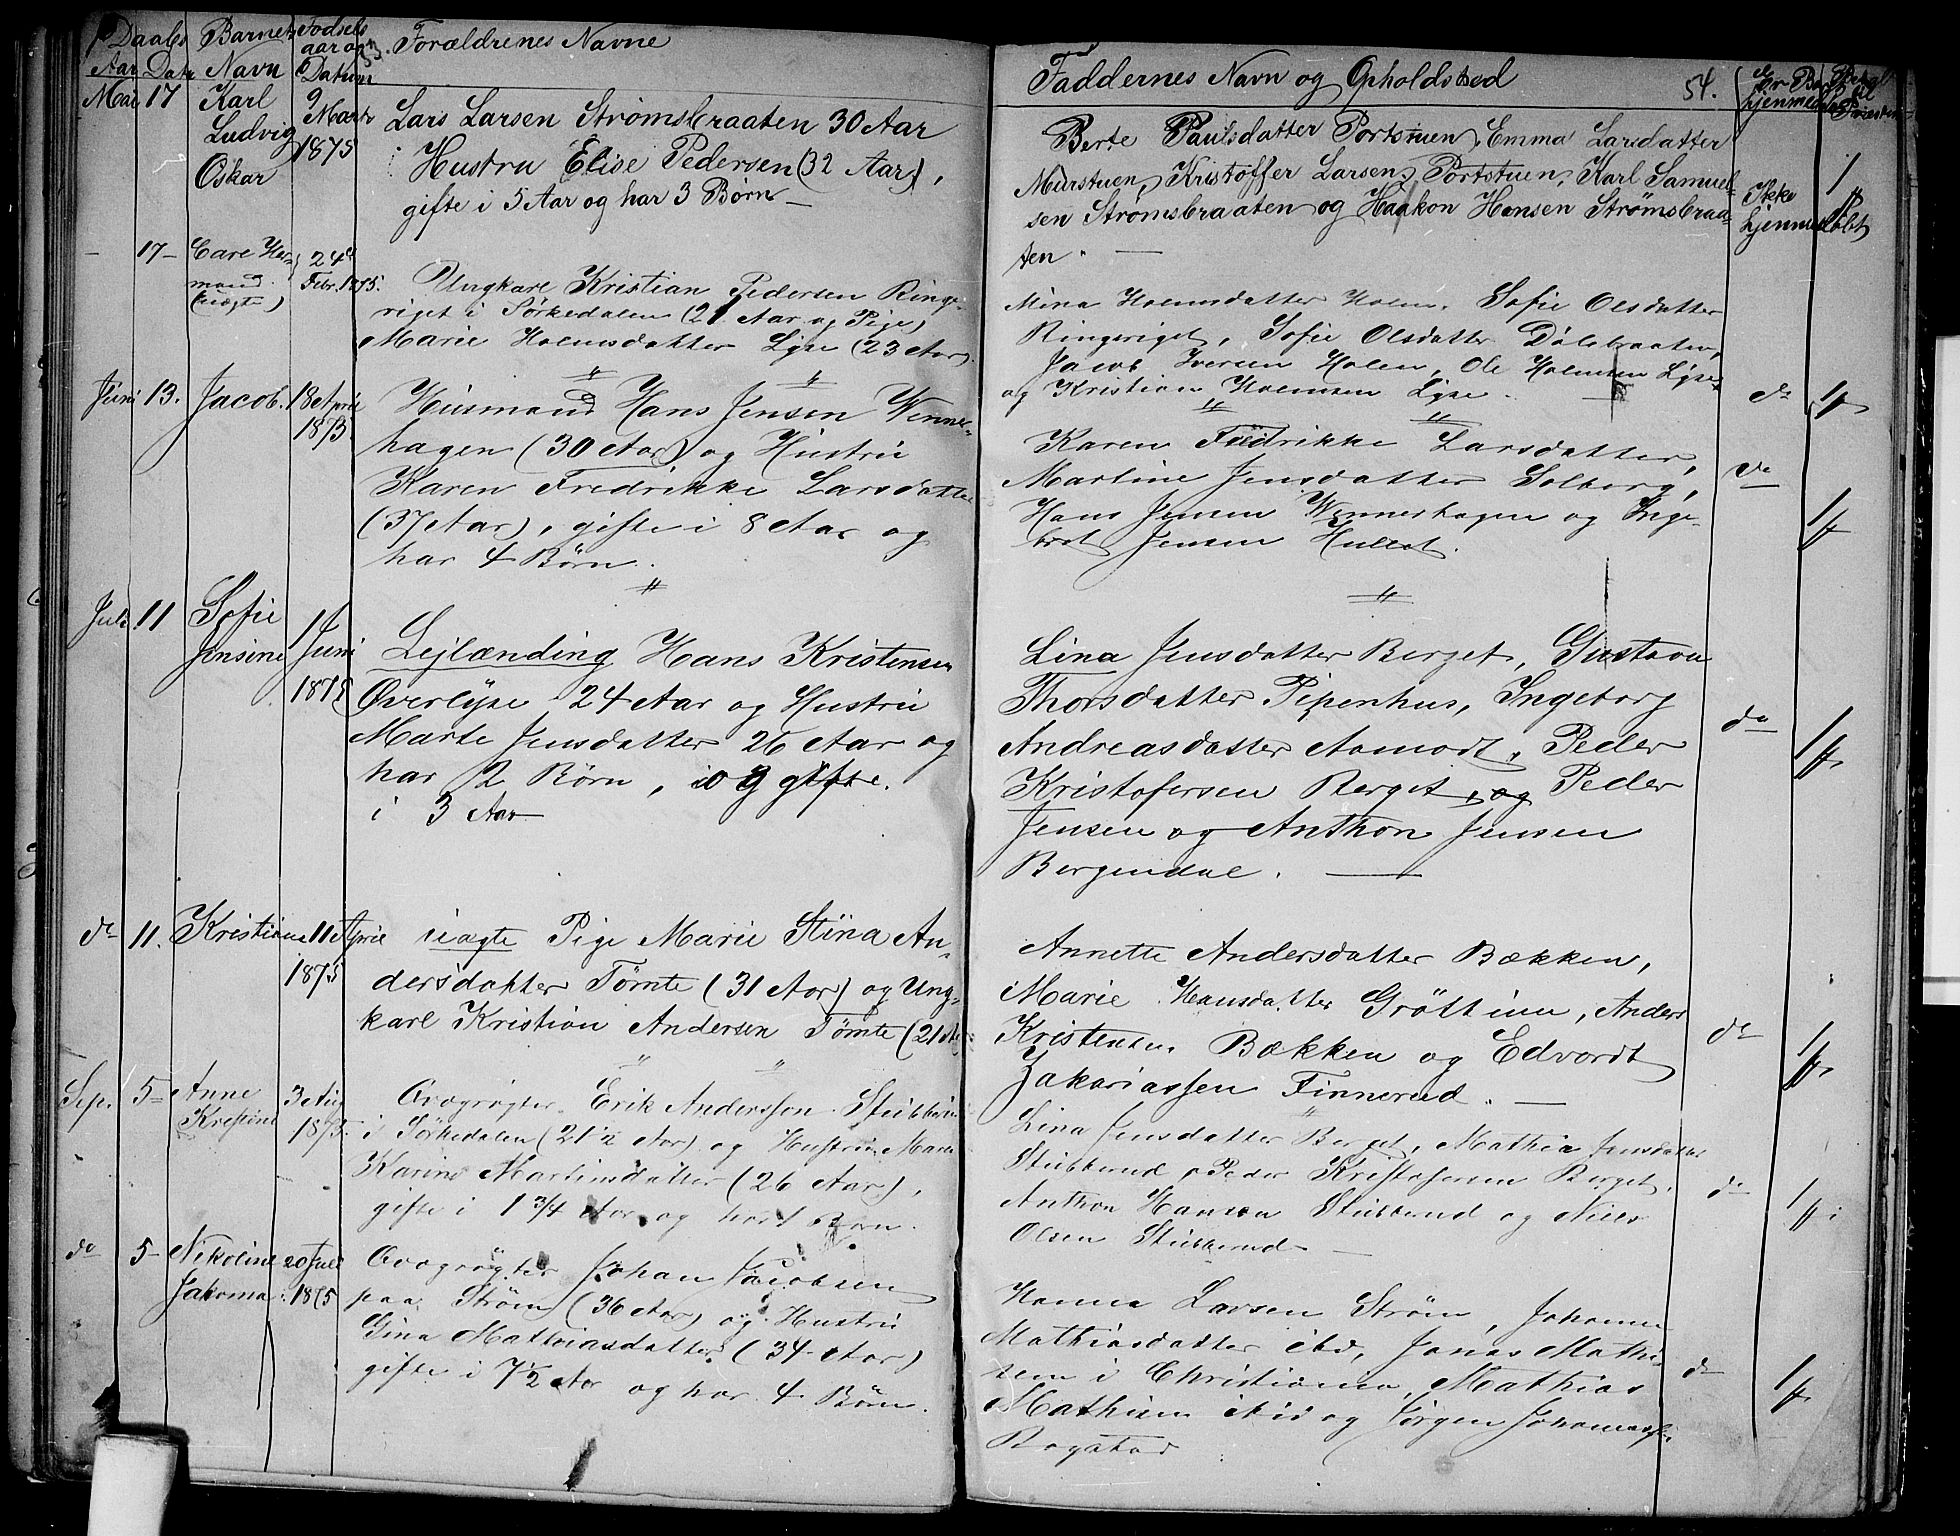 Daabs Barnets Fødsels 53. Forældrenes Navne
Aar Dato Navn aar og Datum
Mai 17 Karl Ludvig Oskar 9 Marts 1875
Lars Larsen Strømsbraaten 30 Aar
Hustru Elise Pedersen (32 Aar),
gifte i 5 Aar og har 3 Børn
— 17 — Carl Her-
mand
(uægte)
24de Febr. 1875.
Ungkarl Kristian Pedersen Ringe-
riget i Sørkedalen (21 Aar og Pige)
Marie Holmsdatter Lyse (23 Aar).
Juni 13. Jacob. 18 April 1875.
Husmand Hans Jensen Wenner-
hagen (30 Aar) og Hustru
Karen Fredrikke Larsdatter
(37 Aar), gifte i 8 Aar og
har 4 Børn.
Juli 11 Sofie Jensine 1 Juni 1875
Lejlænding Hans Kristensen
Øverlyse 24 Aar og Hustru
Marte Jensdatter 26 Aar og
har 2 Børn, og gifte.
i 3 Aar
do 11. Kristian 11 April 1875
uægte Pige Marie Stina An-
dersdatter Tømte (31 Aar) og Ung-
karl Kristian Andersen Tømte (21 Aar
Sep. 5 — Anne Kristine 3 Aug 1875.
Erik Anderssen Stubberud
i Sørkedalen (21½ Aar) og Hustru Maria
Karine Martinsdatter (26 Aar),
gifte i 1 3/4 Aar og har 1 Barn.
do 5 — Nikoline Jakoma 20 Juli 1875
Johan Jacobsen
paa Strøm (36 Aar) og Hustru
Gina Mathiasdatter (34 Aar)
gifte i 7½ Aar og har 4 Børn.
Faddernes Navn og Opholdsted 54.
Er Barnet hjemmedøbt
Berte Paulsdatter Portstuen, Emma Larsdatter
Murstuen, Kristoffer Larsen Portstuen, Karl Samuel-
sen Strømsbraaten og Haakon Hansen Strømsbraa-
ten. —
Ikke
hjemmedøbt
Mina Holmsdatter Holen, Sofie Olsdatter
Ringeriget, Sofie Olsdatter Dölebraaten,
Jacob Iversen Holen, Ole Holmsen Lyse
og Kristian Holmsen Lyse. do
Karen Fredrikke Larsdatter,
Martine Jensdatter Solberg, do
Hans Jensen Wennerhagen og Inge-
bret Jensen Hullet.
Lina Jensdatter Berget, Gustava
Thorsdatter Pipenhus, Ingeborg
Andreasdatter Aamodt, Peder do
Kristofersen Berget, og Peder
Jensen og Anthon Jensen
Bergendal. —
Annette Andersdatter Bækken,
Marie Hansdatter Grøttum, Anders
Kristensen Bækken og Edvardt do
Zakariassen Finnerud. —
Lina Jensdatter Berget, Mathia Jensdatter
Stubberud, Peder Kristofersen Berget,
Anthon Hansen Stubberud og Niels do
Olsen Stubberud —
Hanna Larsen Strøm, Johanne
Mathiasdatter ibid, Jonas Mathi-
sen i Christiania, Mathias do
Mathisen ibid og Jørgen Johannesen
Bogstad